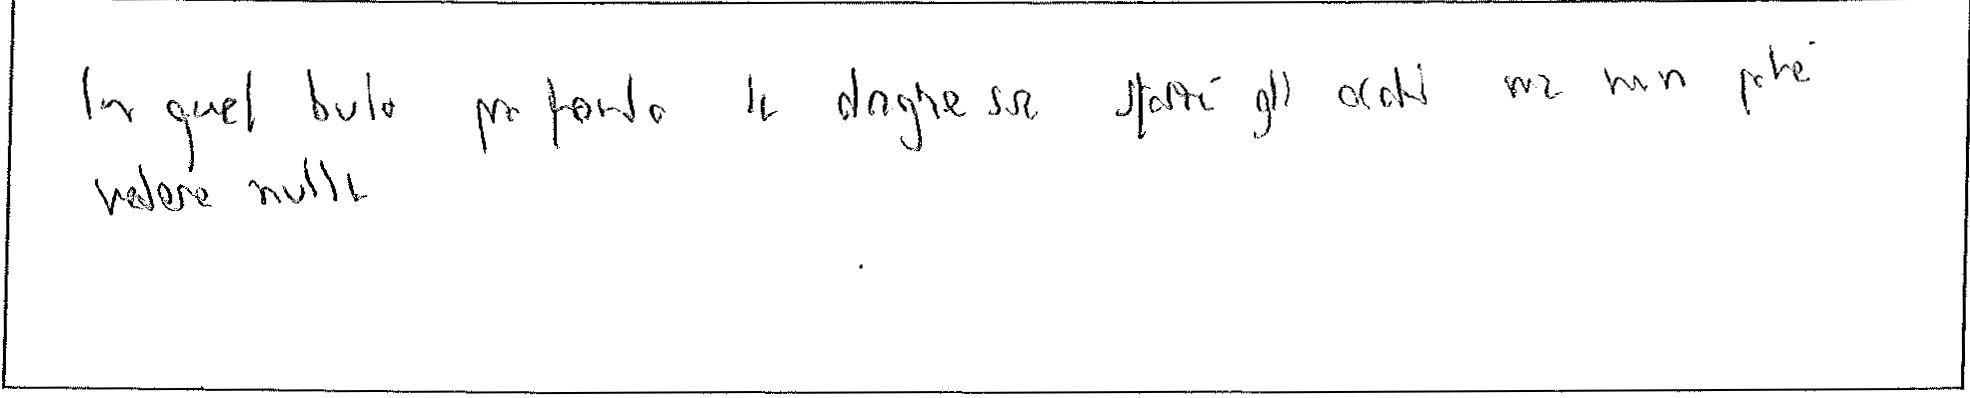 In quel buio profondo la dragressa spostò gli occhi ma non poté
vedere nulla